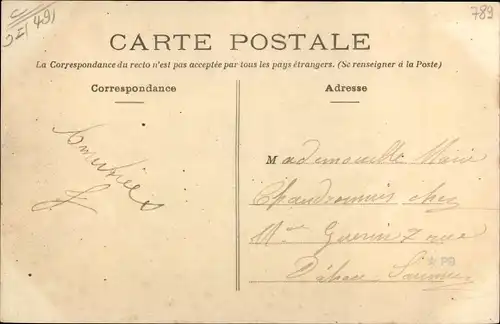 (49)
789
CARTE POSTALE
La Correspondance du recto n'est pas acceptée par tous les pays étrangers. (Se renseigner à la Poste)
Correspondance
Adresse
Mademoiselle Marie
chez
Mme Guerin 7 rue
Saumur